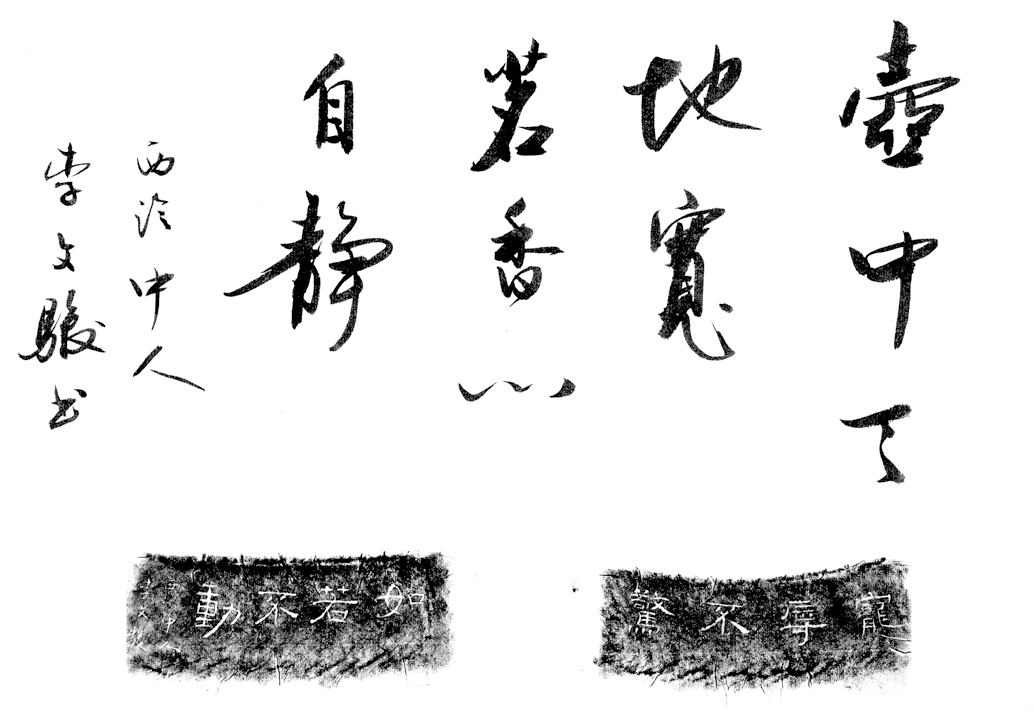 壺中天
地寬
茗香心
自靜
西泠中人
李文駿书
寵辱不驚
如若不動